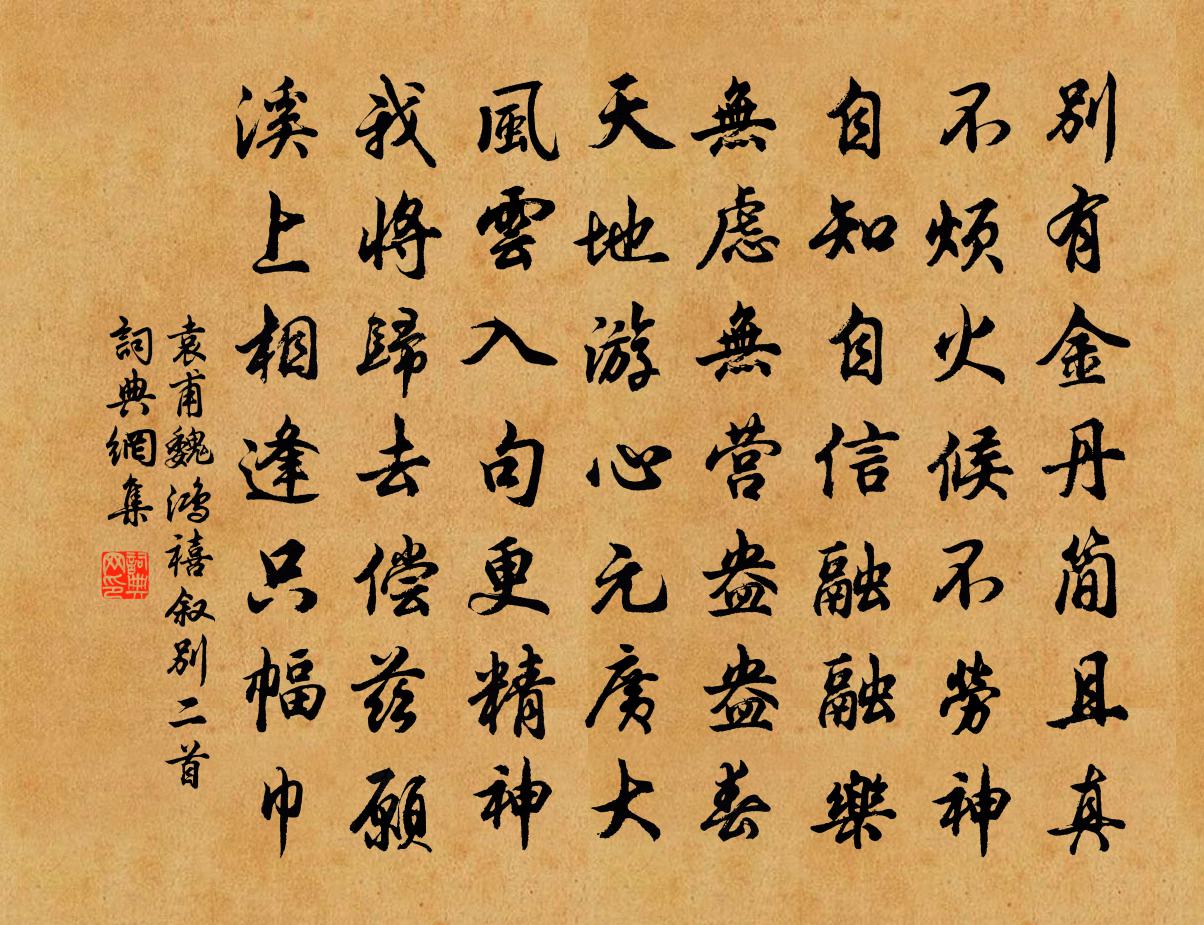 別有金丹简且真
不烦火候不勞神
自知自信融融樂
無慮無营盎盎春
天地游心元廣大
風雲入句更精神
我將歸去偿兹願
溪上相逢只幅巾
袁甫魏鴻禧叙别二首
詞典網集
詞典網印